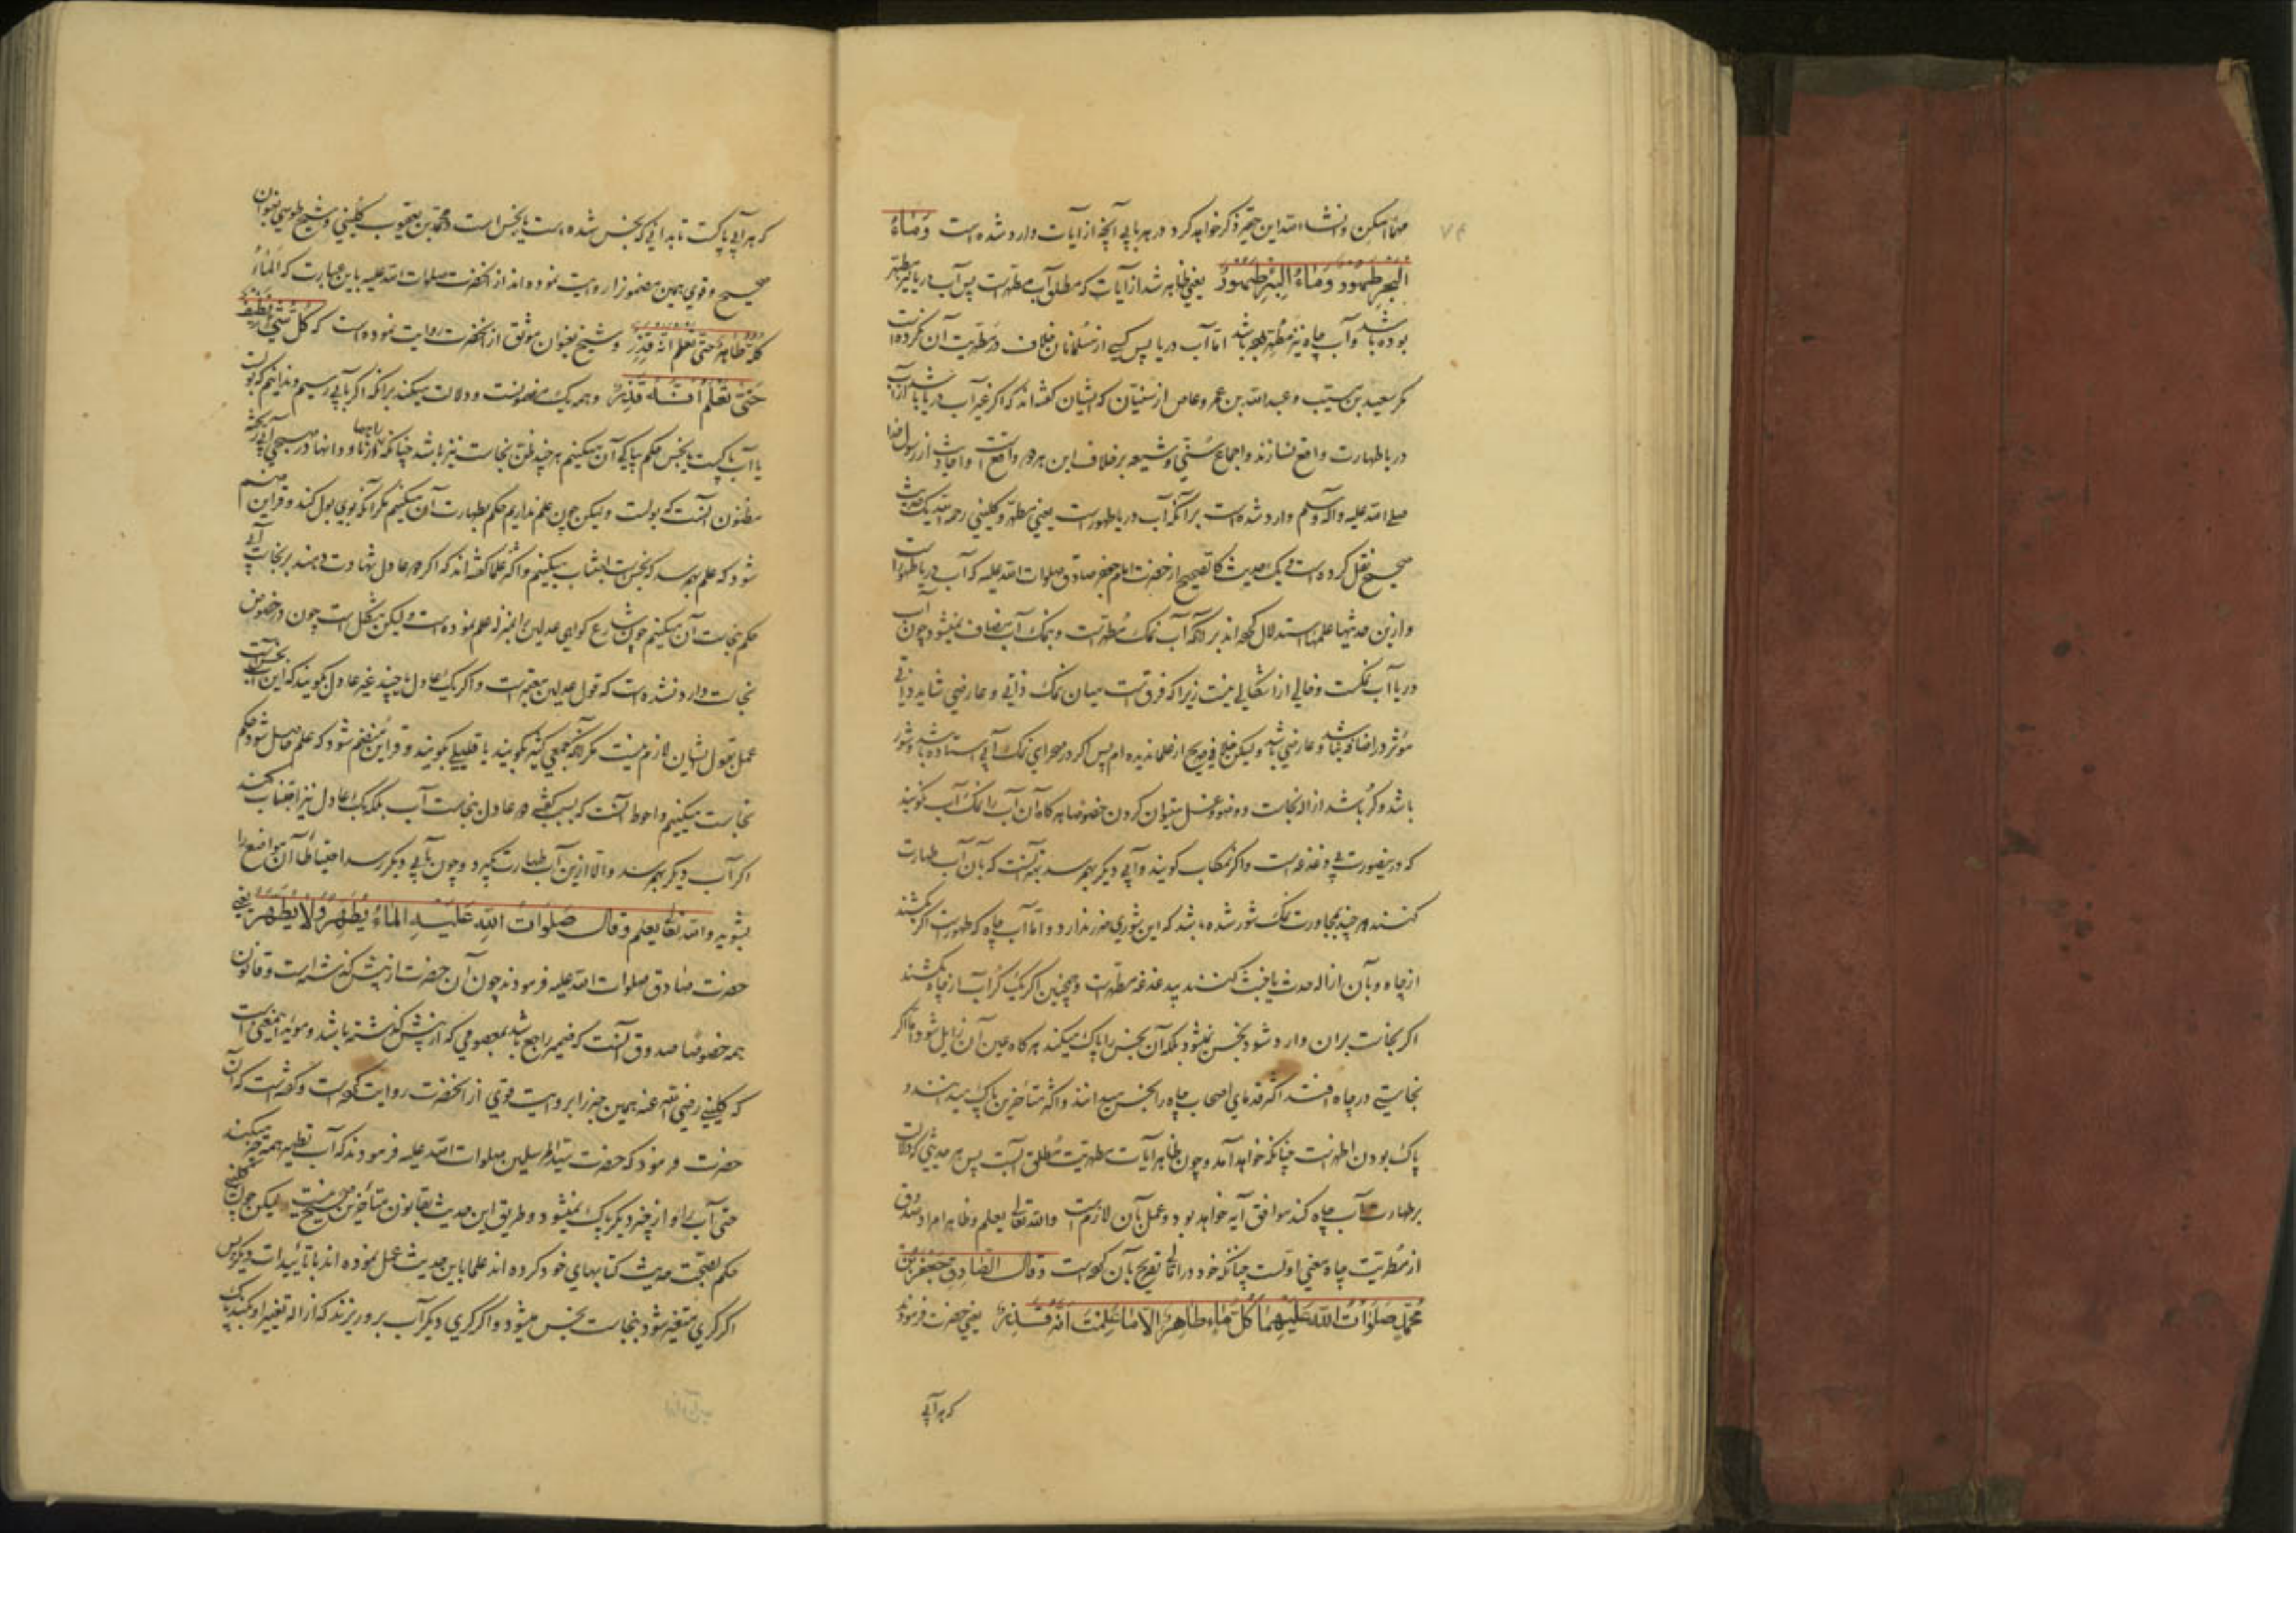 ۷۴
مهما امکن و انشاء الله این حقیر ذکر خواهد کرد در هر بابی آنچه از آیات وارد شده است وَمَاءُ
الْبَحْرِ طَهُورٌ وَمَاءُ الْبِئْرِ طَهُورٌ یعنی ظاهر شد از آیات که مطلق آب مطهرست پس آب دریا نیز مطهر
بوده باشد و آب چاه نیز مطهر بوده باشد اما آب دریا پس کسی از مسلمانان خلاف در مطهریت آن نکرده است
مگر سعید بن مسیب و عبدالله بن عمرو عاص از سنیان که ایشان گفته‌اند که اگر غیر آب دریا باشد از آب
دریا طهارت واقع نسازند و اجماع سنی و شیعه بر خلاف این هر دو واقع است و احادیث از رسول خدا
صلی الله علیه و آله و سلم وارد شده است بر آنکه آب دریا طهورست یعنی مطهر و کلینی رحمه الله یک حدیث
صحیح نقل کرده است و یک حدیث کالصحیح از حضرت امام جعفر صادق صلوات الله علیه که آب دریا طهور است
و ازین حدیثها علما استدلال کرده‌اند بر آنکه آب نمک مطهرست و بنمک آب مضاف نمیشود چون آب
دریا آب نمکست و خالی از اشکالی نیست زیرا که فرق است میان نمک ذاتی و عارضی شاید ذاتی
مؤثر در اضافه نباشد و عارضی باشد و لیکن خلافی صریح از علما ندیده‌ام پس اگر در صحرای نمک آبی ستاده باشد و شور
باشد و کر باشد ازاله نجاست و وضو و غسل میتوان کردن خصوصا هر گاه آن آب را نمک آب نگویند
که درینصورت بی دغدغه است و اگر نمکاب گویند و آبی دیگر بهم رسد بهتر آنست که بآن آب طهارت
کنند هر چند بمجاورت نمک شور شده باشد که این شوری ضرر ندارد و اما آب چاه که طهورست اگر بکشند
از چاه و بآن ازاله حدث یا خبث کنند بیدغدغه مطهرست و همچنین اگر یک کر آب از چاه بکشند
اگر نجاست بران وارد شود نجس نمیشود بلکه آن نجس را پاک میکند هر گاه عین آن زایل شود و اما اگر
نجاستی در چاه افتد اکثر قدمای اصحاب چاه را نجس میدانند و اکثر متاخرین پاک میدانند و
پاک بودن اظهرست چنانکه خواهد آمد و چون ظاهر آیات مطهریت مطلق آبست پس هر حدیثی که دلالت
بر طهارت آب چاه کند موافق آیه خواهد بود و عمل بآن لازم است والله تعالی یعلم و ظاهرا مراد صدوق
از مطهریت چاه معنی اولست چنانکه خود در امالی تصریح بآن کرده است وَقَالَ الصَّادِقُ جَعْفَرُ بْنُ
مُحَمَّدٍ صَلَوَاتُ اللهِ عَلَيْهِمَا كُلُّ مَاءٍ طَاهِرٌ إِلَّا مَا عَلِمْتَ أَنَّهُ قَذِرٌ یعنی حضرت فرمودند
که هر آبی
که هر آبی پاکست تا بدانی که نجس شده است یا نجس است و محمد بن یعقوب کلینی و شیخ طوسی بعنوان
صحیح و قوی همین مضمونرا روایت نموده‌اند از آنحضرت صلوات الله علیه باین عبارت که الْمَاءُ
كُلُّهُ طَاهِرٌ حَتَّى تَعْلَمَ أَنَّهُ قَذِرٌ و شیخ بعنوان موثق از آنحضرت روایت نموده است که كُلُّ شَيْءٍ نَظِيفٌ
حَتَّى تَعْلَمَ أَنَّهُ قَذِرٌ و همه یک مضمونست و دلالت میکند بر آنکه اگر بآبی رسیم و ندانیم که بولست
یا آب پاکست یا نجس حکم بپاکی آن میکنیم هر چند ظن نجاست نیز باشد چنانکه در راهها و دالانها در صبحی آبی ریخته
مظنون آنست که بولست و لیکن چون علم نداریم حکم بطهارت آن میکنیم مگر آنکه بوی بول کند و قراین منضم
شود که علم بهم رسد که نجس است اجتناب میکنیم و اکثر علما گفته‌اند که اگر دو عادل شهادت دهند بر نجاست آبی
حکم بنجاست آن میکنیم چون شارع گواهی عدلین را بمنزله علم نموده است و لیکن مشکل است چون در خصوص
نجاست وارد نشده است که قول عدلین معتبرست و اگر یک عادل یا چند غیر عادل بگویند که این آب نجس است
عمل بقول ایشان لازم نیست مگر آنکه جمعی کثیر بگویند یا قلیلی بگویند و قراین منضم شود که علم حاصل شود حکم
نجاست میکنیم و احوط آنست که بسبب گفته دو عادل بنجاست آب بلکه یک عادل نیز اجتناب کنند
اگر آب دیگر بهم رسد و الا ازین آب طهارت گیرد و چون بآبی دیگر رسد احتیاطا آن مواضع را
بشوید والله تعالی یعلم وقال صَلَوَاتُ اللهِ عَلَيْهِ الْمَاءُ يُطَهِّرُ وَلَا يُطَهَّرُ یعنی
حضرت صادق صلوات الله علیه فرمودند چون آن حضرت از پیش گذشته است و قانون
همه خصوصا صدوق آنست که ضمیر راجع باشد بمعصومی که از پیش گذشته باشد و مؤید اینمعنی است
که کلینی رضی الله عنه همین خبر را بروایت قوی از آنحضرت روایت کرده است و گفته است که آن
حضرت فرمود که حضرت سید المرسلین صلوات الله علیه فرمودند که آب تطهیر همه چیز میکند
حتی آب را و از چیز دیگر پاک نمیشود و طریق این حدیث بقانون متأخرین صحیح نیست لیکن چون کلینی
حکم بصحت حدیث کتابهای خود کرده‌اند علما باین حدیث عمل نموده‌اند با تأییدات دیگر پس
اگر کری متغیر شود بنجاست نجس میشود و اگر کری دیگر آب برو ریزند که ازاله تغییر او بکند پاک